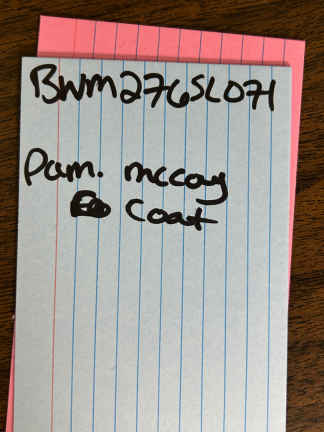 BWM276SL071
Pam. mccoy
Coat